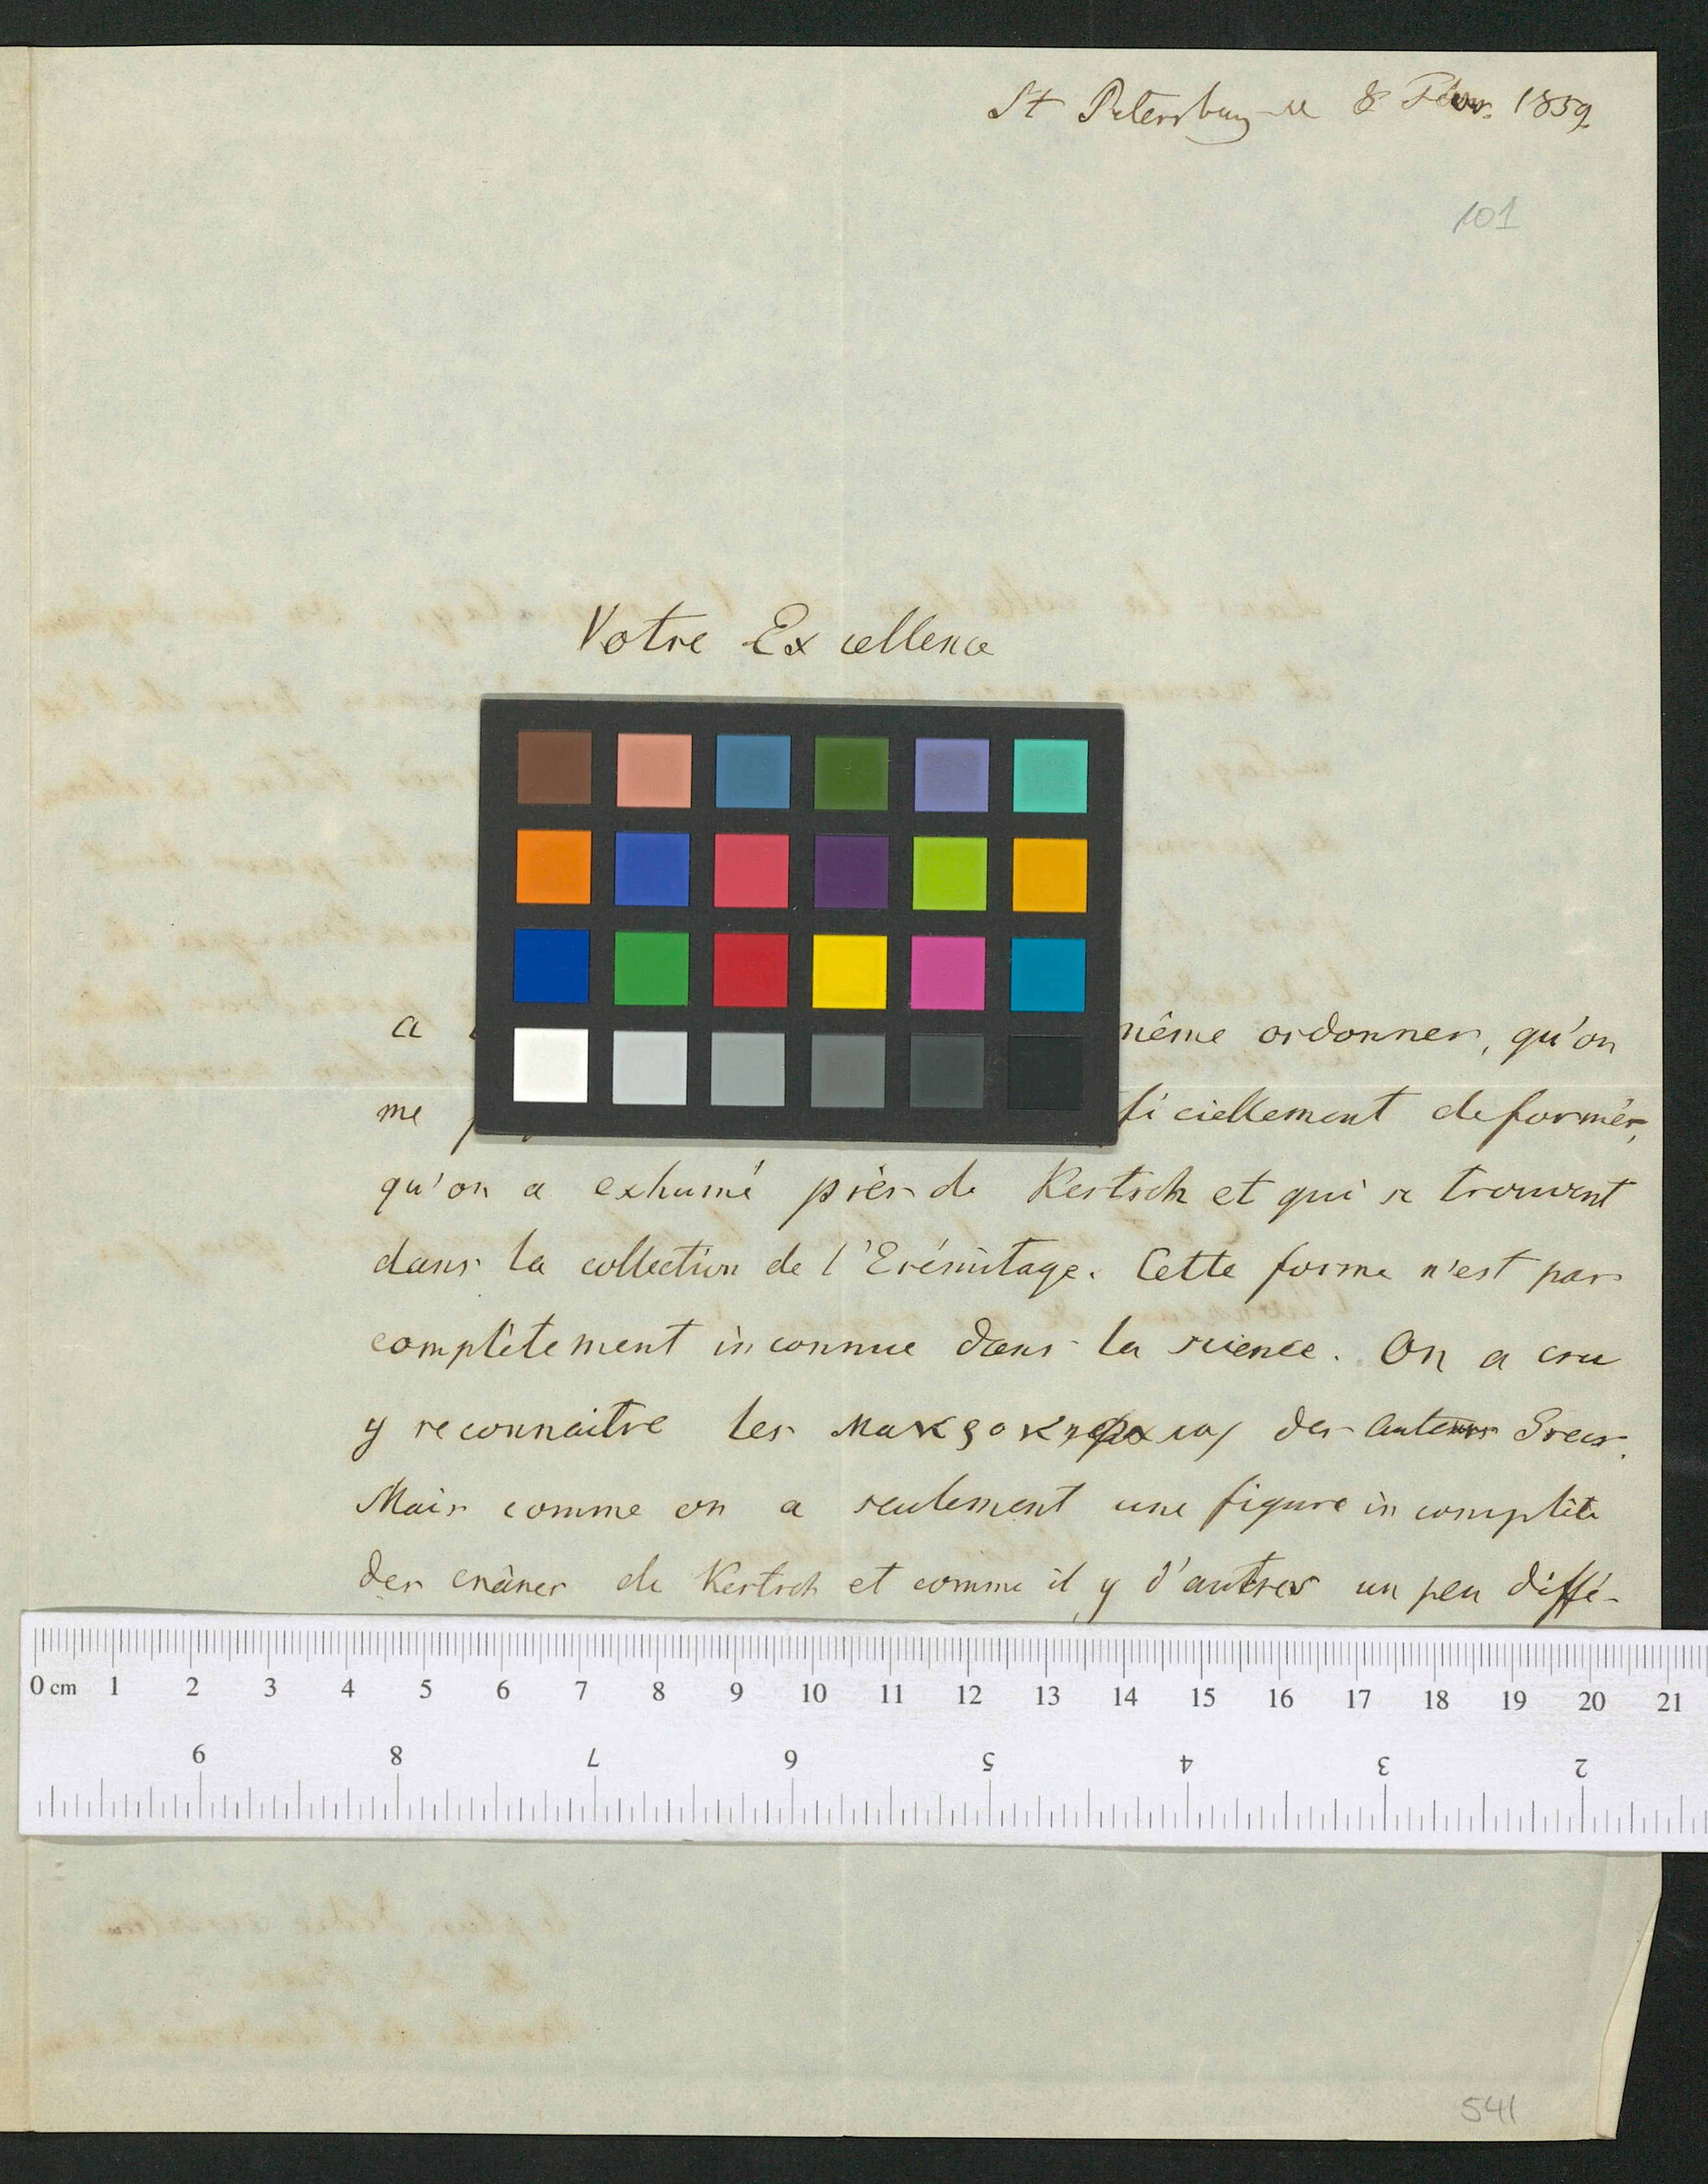 St Petersburg le 8 Févr. 1859.
101
Votre Excellence
a même ordonner, qu'on
me ficiellement deformés,
qu'on a exhumé près de Kertsch et qui se trouvent
dans la collection de l'Erémitage. Cette forme n'est pas
complètement inconnue dans la science. On a cru
y reconnaitre les Μακροκεφαλοι des auteurs Grecs.
Mais comme on a seulement une figure incomplète
des crânes de Kertsch et comme il y d'autres un peu diffé-
0 cm 1 2 3 4 5 6 7 8 9 10 11 12 13 14 15 16 17 18 19 20 21
9 8 7 6 5 4 3 2
541